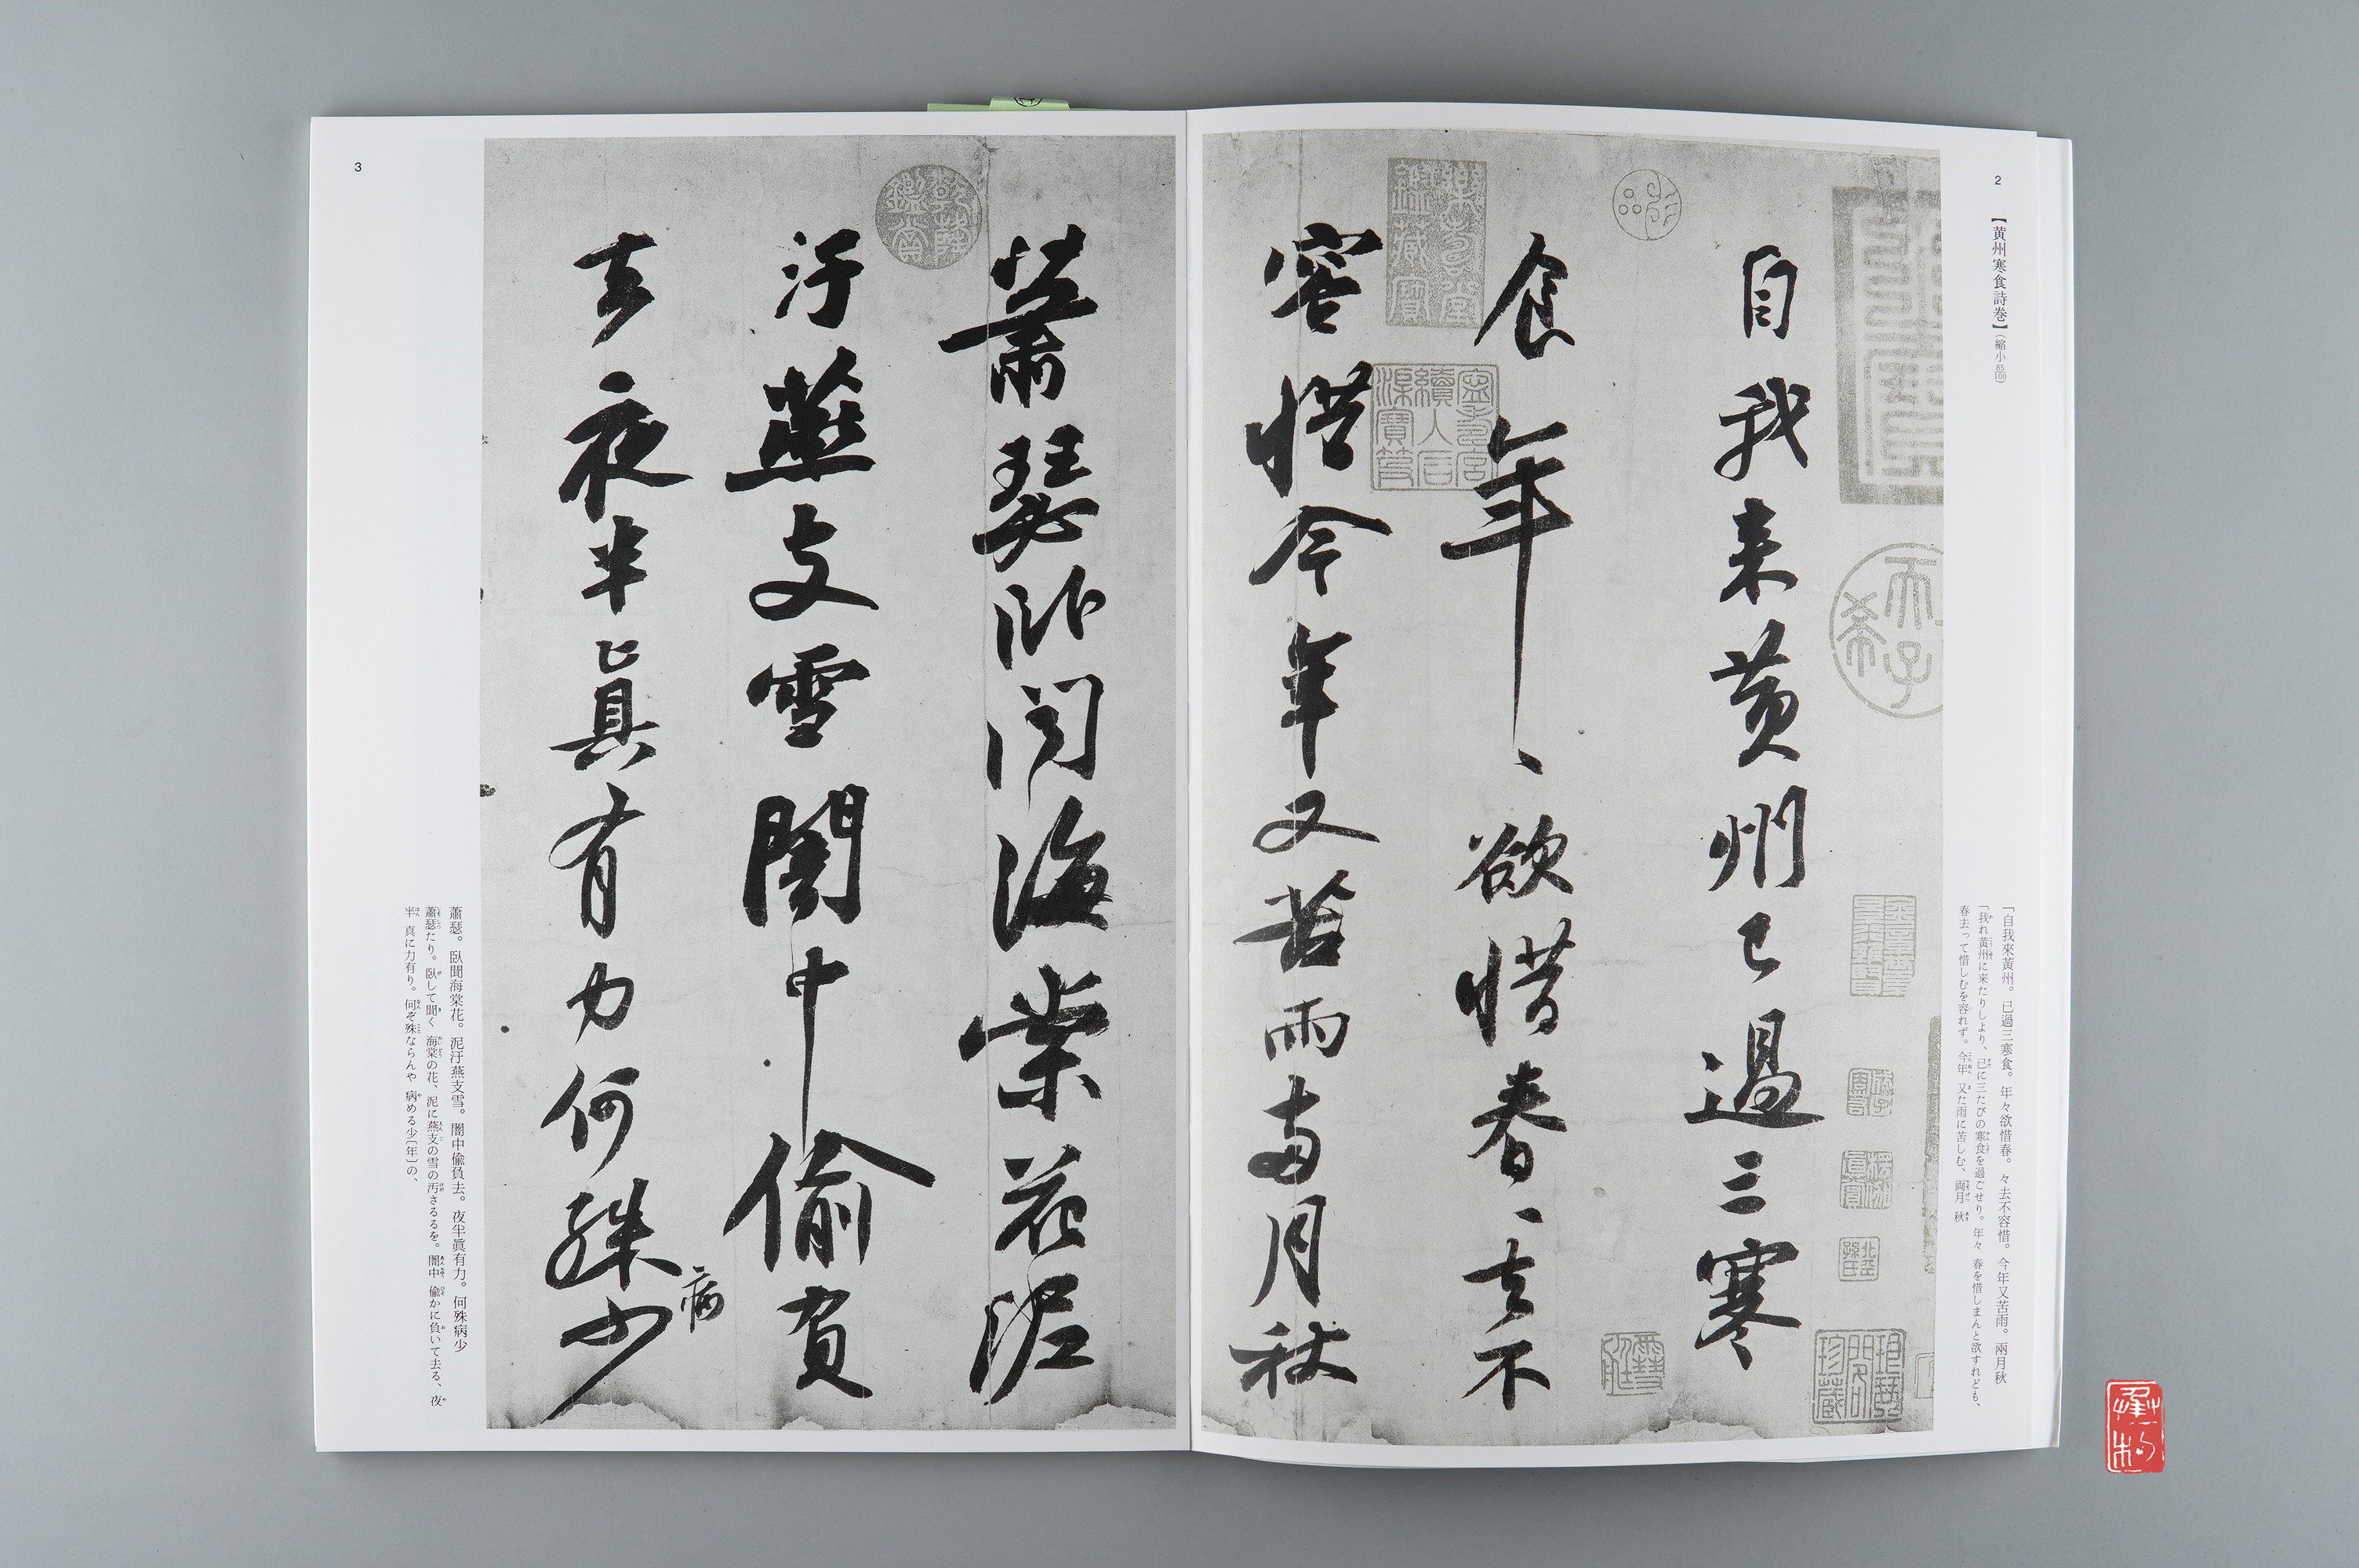 2
【黄州寒食詩巻】(縮小85/100)
自我来黄州已過三寒
食年〻欲惜春〻去不
容惜今年又苦雨兩月秋
「自我來黄州。已過三寒食。年々欲惜春。々去不容惜。今年又苦雨。兩月秋
「我れ黄州に来たりしより、已に三たびの寒食を過ごせり。年々 春を惜しまんと欲すれども、
春去って惜しむを容れず。今年 又た雨に苦しむ、両月 秋
天子
希
蕭瑟臥聞海棠花泥
汙燕支雪闇中偷負
去夜半真有力何殊少
病
乾隆
鑑賞
3
蕭瑟。臥聞海棠花。泥汙燕支雪。闇中偸負去。夜半眞有力。何殊病少
蕭瑟たり。臥して聞く 海棠の花、泥に燕支の雪の汚さるるを。闇中 偸かに負いて去る、夜
半 真に力有り。何ぞ殊ならんや 病める少〔年〕の、